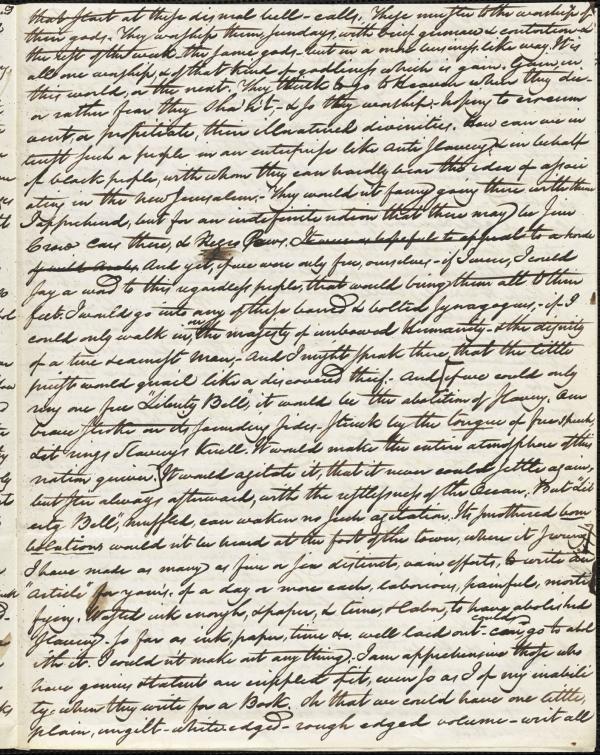 that start at these dismal bell-calls. These muster to the worship of
their gods. They worship them, Sundays, with brief grimace & contortion &
the rest of the week the same gods - but in a more business like way. It is
all one worship, & of that kind of godliness which is gain. Gain, in
this world, or the next. They think to go to Heaven when they die -
or rather fear they sha'n't - & so they worship - hoping to circum
vent, or propitiate, their illnatured divinities. How can we in
terest such a people in an enterprise like Anti Slavery & in behalf
of black people, with whom they can hardly bear the idea of associ
ating in the new Jerusalem. They would n't fancy going there with them
I apprehend, but for an indefinite notion that there may be Jim
Crow cars there, & Negro Pews. It were as hopeful to appeal to a horde
of wild Arabs. And yet, if we were only free, ourselves - if I were, I could
say a word to this regardless people, that would bring them all to their
feet. I would go into any of these barred & bolted Synagogues, - if I
could only walk in, in the majesty of unbowed Humanity - & the dignity
of a true & earnest man, - And I might speak there, that the little
priests would quail like a discovered thief. - And if we could only
ring one free "Liberty Bell", it would be the abolition of slavery. One
brave stroke on its sounding sides - struck by the tongue of free speech,
Let rings Slavery's Knell. It would make the entire atmosphere of this
nation quiver. It would agitate it, that it never could settle again,
but stir always afterward, with the restlessness of the Ocean. But "Lib
erty Bell", muffled, can waken no such agitation. Its smothered bom
bolations would n't be heard at the foot of the tower, where it swung.
I have made as many as five or six distinct, vain efforts, to write an
"Article" for yours. of a day or more each, laborious, painful, morti
fying. Wasted ink enough, & paper, & time, & labor, to have abolished
Slavery. So far as ink, paper, time &c, well laid out - could go to abol
ish it. I could n't make out any thing. I am apprehensive those who
have genius & talent are crippled of it, even so as I of my inabili
ty - when they write for a Book. Oh that we could have one little,
plain, ungilt - white edged - rough edged volume - writ all